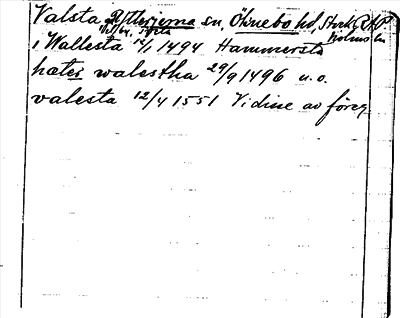 Valsta, Ytterjerna sn, Öhnebo hd, Stock RAP
i Wallesta 12/1 1494 Hammersta
hæter walestha 29/9 1496 u.o.
valesta 12/4 1551 Vidine av föreg.